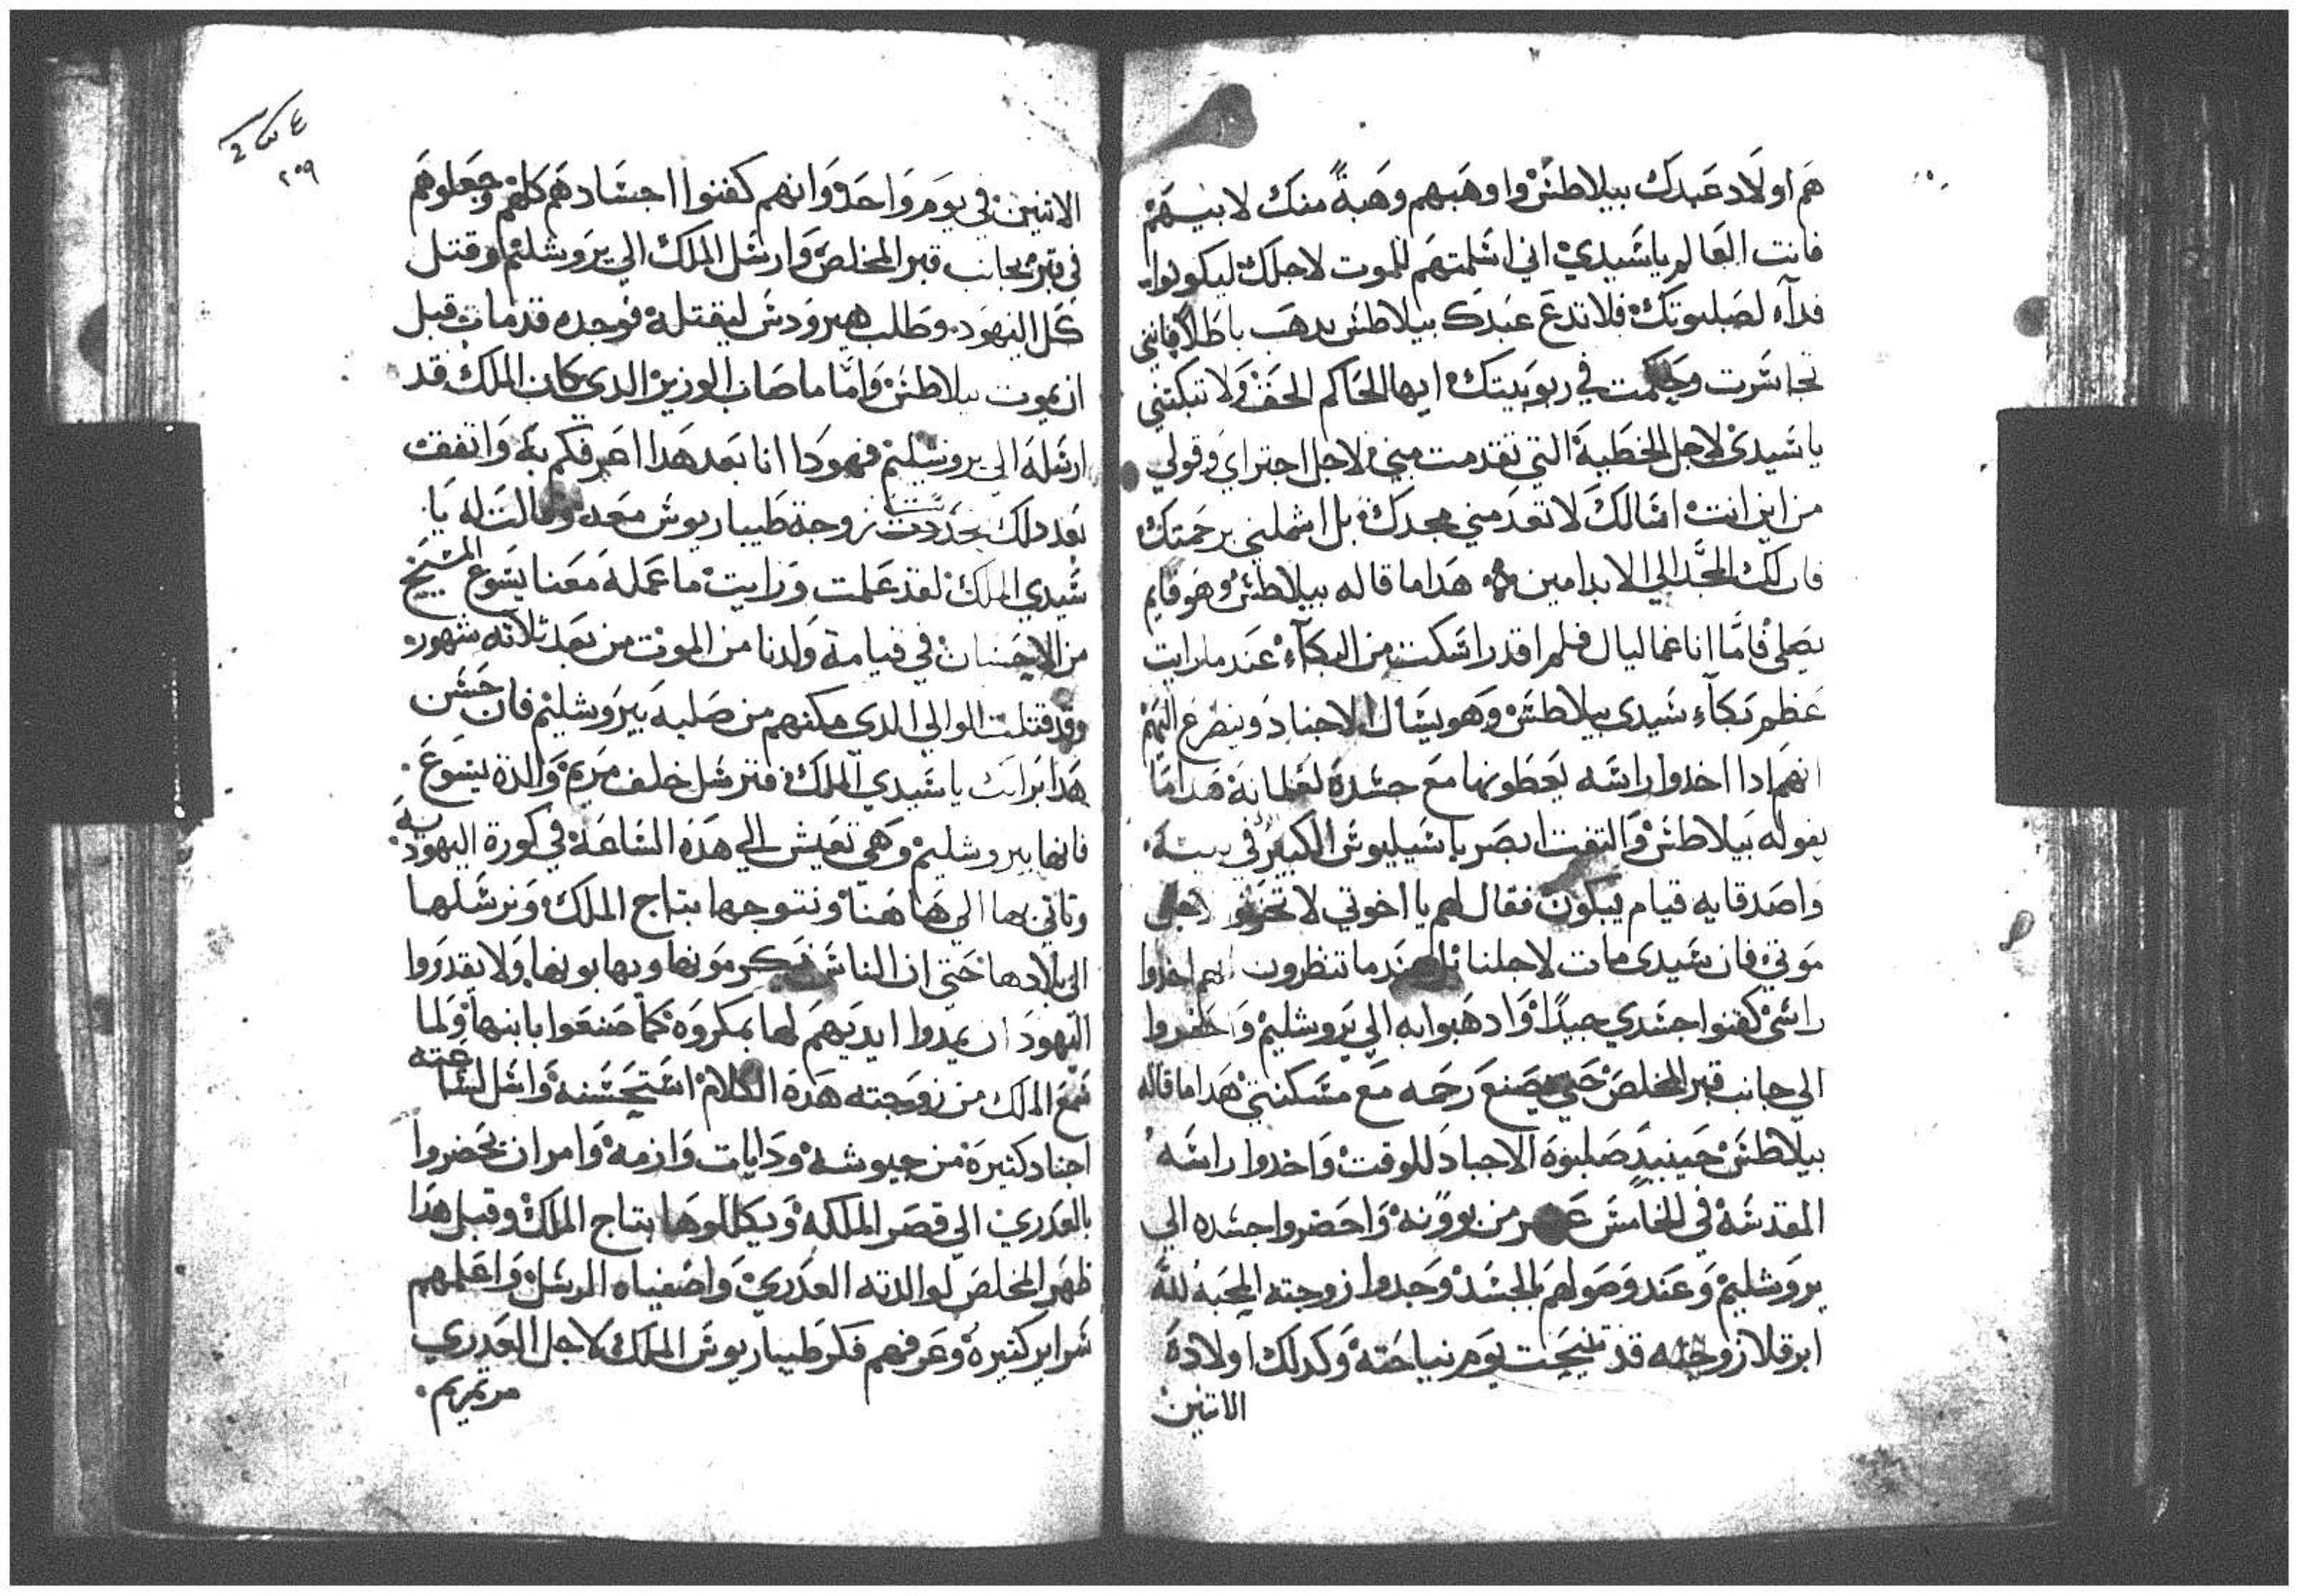 هم اولاد عبدك بيلاطس واوهبهم وهبةً منك لابيهم
فانت العالم ياسيدي اني اسلمتهم للموت لاجلك ليكونوا
فدآء لصلبوتك فلا تدع عبدك بيلاطس يدهب باطلا فانني
تجاسرت وحكمت في ربوبيتك ايها الحاكم الحق ولا تبكتني
ياسيدي لاجل الخطية التي تقدمت مني لاجل اجتراي وقولي
من اين انت اسالك لا تعدمني مجدك بل اشملني برحمتك
فان لك المجد الي الابد امين هدا ما قاله بيلاطس وهو قايم
يصلي فاما انا غماليال فلم اقدر اسكت من البكآء عند ما رايت
عظم بكاء سيدي بيلاطس وهو يسال الاجناد ويتضرع اليهم
انهم ادا اخدوا راسه يعطونها مع جسده لغلمانه هدا ما
يقوله بيلاطس والتفت ابصر باسيليوس الكبير في بيته
واصدقايه قيام يبكون فقال لهم يا اخوتي لا تحزنوا لاجل
موتي فان سيدي مات لاجلنا عند ما تنظرون انهم اخدوا
راسي كفنوا جسدي جيدًا وادهبوا به الي يروشليم واحفروا
الي جانب قبر المخلص حتي يصنع رحمه مع مسكنتي هدا ما قاله
بيلاطس حينيدٍ صلبوه الاجناد للوقت واخدوا راسه
المقدسه في الخامس عشر من بوونه واحضروا جسده الي
يروشليم وعند وصولهم بالجسد وجدوا زوجته المحبه لله
ابرقلا زوجته قد تنيحت يوم نياحته وكدلك اولاده
الاتنين
٤
٢٠٩
الاتنين في يوم واحد وانهم كفنوا اجسادهم كلهم وجعلوهم
في قبر بجانب قبر المخلص وارسل الملك الي يروشليم وقتل
كل اليهود وطلب هيرودس ليقتله فوجده قد مات قبل
ان يموت بيلاطس واما ما صاب الوزير الدي كان الملك قد
ارسله الي يروشليم فهودا انا بعد هدا اعرفكم به واتفقت
بعد دلك تحددت زوجة طيباريوس معه وقالت له يا
سيدي الملك لقد علمت ورايت ما عمله معنا يسوع المسيح
من الاحسان في قيامة ولدنا من الموت من بعد ثلاثه شهور
وقد قتلت الوالي الدي مكنهم من صلبه بيروشليم فان حسن
هدا برايك ياسيدي الملك فترسل خلف مريم والدة يسوع
فانها بيروشليم وهي تعيش الي هده الساعة في كورة اليهوديه
وتاتي بها الي هاهنا ونتوجها بتاج الملك ونرسلها
الي بلادها حتي ان الناس يكرمونها ويهابونها ولا يقدروا
اليهود ان يمدوا ايديهم لها بمكروه كما صنعوا بابنها ولما
سمع الملك من زوجته هدة الكلام استحسنه وارسل لساعته
اجناد كثيرة من جيوشه ودايات وازمه وامر ان يحضروا
بالعدري الي قصر الملكه ويكللوها بتاج الملك وقبل هدا
ظهر المخلص لوالدته العدري واصفياه الرسل واعلمهم
سراير كثيرة وعرفهم فكر طيباريوس الملك لاجل العدري
مرتمريم